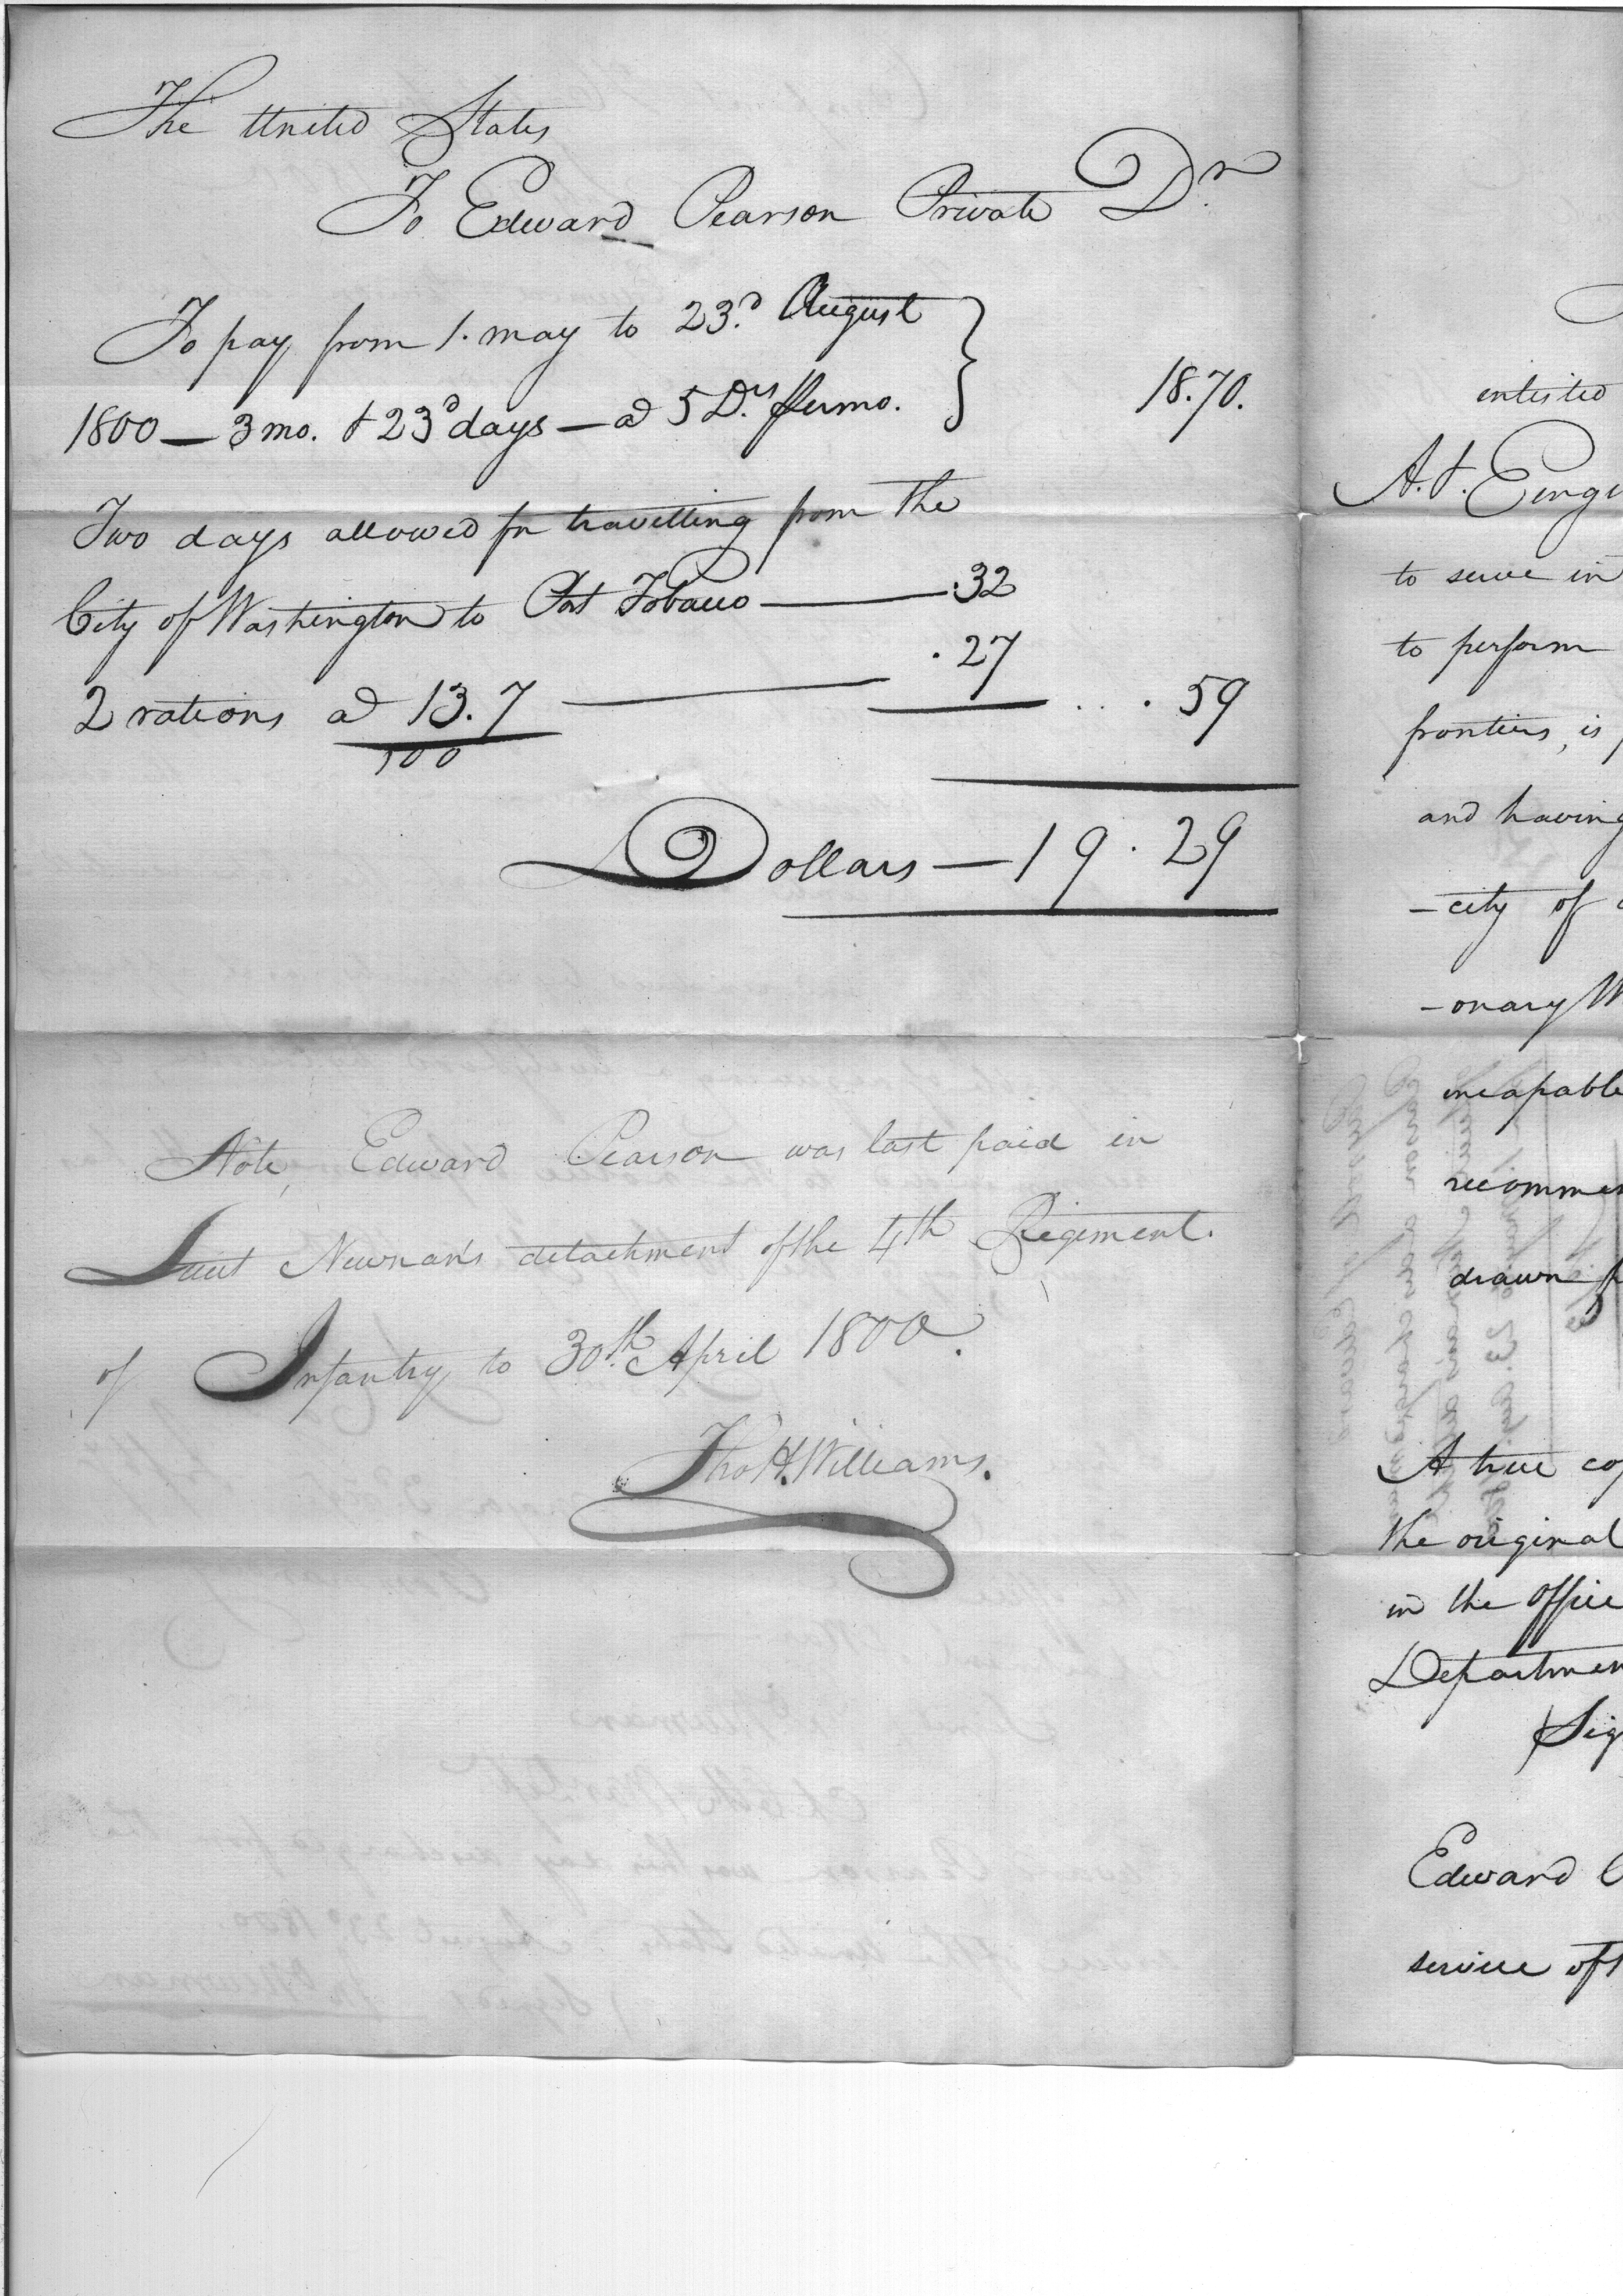 The United States
To Edward Pearson Private Dr.
To pay from 1. may to 23.d August
1800 — 3 mo. & 23d days — a 5 D.rs per mo. 18.70.
Two days allowed for travelling from the
City of Washington to Port Tobacco — .32
2 rations a 13.7/100 — .27 ... .59
Dollars — 19.29
Note, Edward Pearson was last paid in
Lieut Newnan's detachment of the 4th Regiment.
of Infantry to 30th. April 1800.
Tho H. Williams.
enlisted
A. &. Engi
to serve in
to perform
frontiers, is
and having
-city of
-onary W
incapable
recommen
drawn
A true co
the original
in the office
Departmen
Sig
Edward
service of